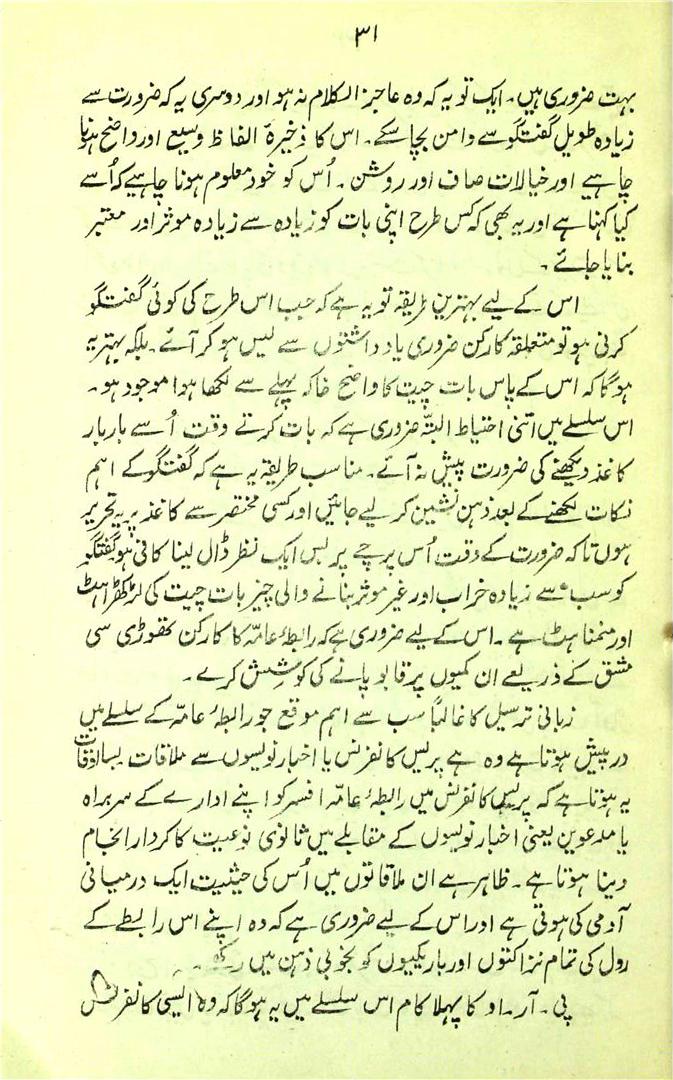 ۳۱
بہت ضروری ہیں۔ ایک تو یہ کہ وہ عاجز الکلام نہ ہو اور دوسری یہ کہ ضرورت سے
زیادہ طویل گفتگو سے دامن بچا سکے۔ اس کا ذخیرۂ الفاظ وسیع اور واضح ہونا
چاہیے اور خیالات صاف اور روشن۔ اُس کو خود معلوم ہونا چاہیے کہ اُسے
کیا کہنا ہے اور یہ بھی کہ کس طرح اپنی بات کو زیادہ سے زیادہ موثر اور معتبر
بنایا جائے۔
اس کے لیے بہترین طریقہ تو یہ ہے کہ جب اس طرح کی کوئی گفتگو
کرنی ہو تو متعلقہ کارکن ضروری یاد داشتوں سے لیس ہو کر آئے۔ بلکہ بہتر یہ
ہوگا کہ اس کے پاس بات چیت کا واضح خاکہ پہلے سے لکھا ہوا موجود ہو۔
اس سلسلے میں اتنی احتیاط البتہّ ضروری ہے کہ بات کرتے وقت اُسے بار بار
کاغذ دیکھنے کی ضرورت پیش نہ آئے۔ مناسب طریقہ یہ ہے کہ گفتگو کے اہم
نکات لکھنے کے بعد ذہن نشین کر لیے جائیں اور کسی مختصر سے کاغذ پر یہ تحریر
ہوں تاکہ ضرورت کے وقت اُس پرچے پر بس ایک نظر ڈال لینا کافی ہو گفتگو
کو سب سے زیادہ خراب اور غیر موثر بنانے والی چیز بات چیت کی لڑکھڑاہٹ
اور منمناہٹ ہے۔ اس کے لیے ضروری ہے کہ رابطۂ عامّہ کا کارکن تھوڑی سی
مشق کے ذریعے ان کمیوں پر قابو پانے کی کوشش کرے۔
زبانی ترسیل کا غالباً سب سے اہم موقع جو رابطۂ عامّہ کے سلسلے میں
درپیش ہوتا ہے وہ ہے پریس کانفرنس یا اخبار نویسوں سے ملاقات بسااوقات
یہ ہوتا ہے کہ پریس کانفرنس میں رابطۂ عامّہ افسر کو اپنے ادارے کے سربراہ
یا مدعوین یعنی اخبار نویسوں کے مقابلے میں ثانوی نوعیت کا کردار انجام
دینا ہوتا ہے۔ ظاہر ہے ان ملاقاتوں میں اُس کی حیثیت ایک درمیانی
آدمی کی ہوتی ہے اور اس کے لیے ضروری ہے کہ وہ اپنے اس رابطے کے
رول کی تمام نزاکتوں اور باریکیوں کو بخوبی ذہن میں رکھے۔
پی۔ آر۔ او کا پہلا کام اس سلسلے میں یہ ہوگا کہ وہ ایسی کانفرنس